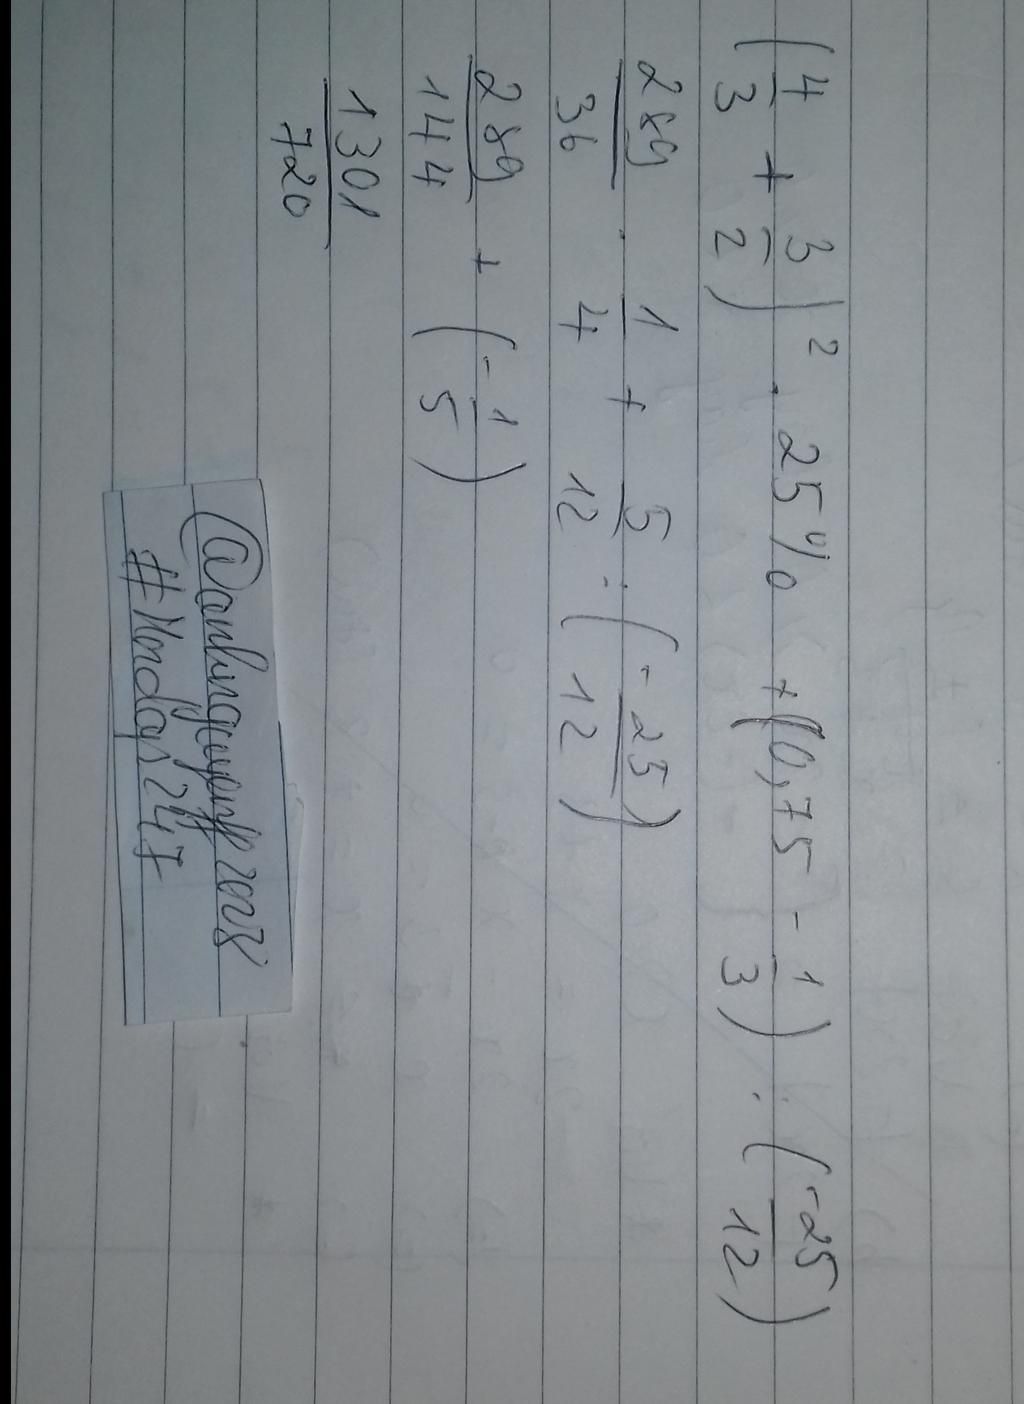 (4/3 + 3/2)² . 25% + (0,75 - 1/3) : (-25/12)
289/36 . 1/4 + 5/12 : (-25/12)
289/144 + (-1/5)
1301/720
@anhnguyenpp2028
#Monday247